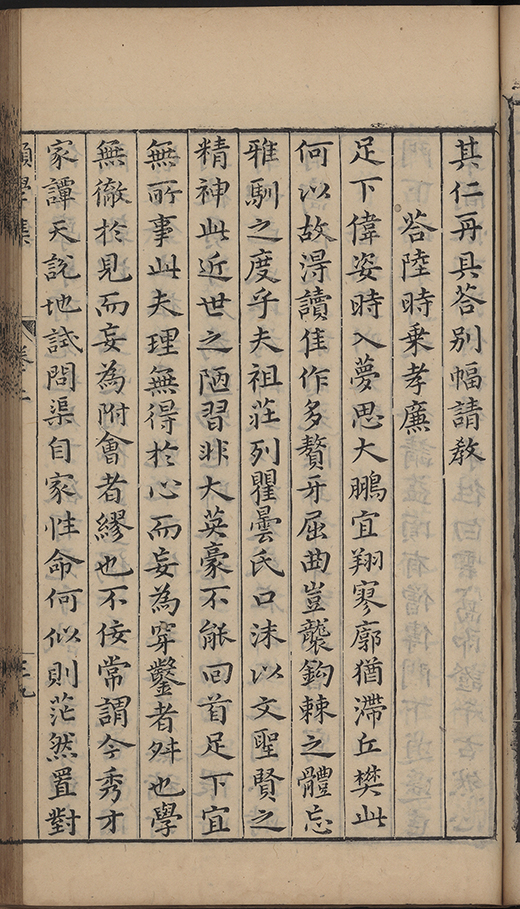 其仁再具荅别幅請教
荅陸時乗孝廉
足下偉姿時入夢思大鵬宜翔寥廓猶滯丘樊此
何以故淂讀佳作多贅牙屈曲豈襲鈎棘之體忘
雅馴之度乎夫祖莊列瞿曇氏口沫以文聖賢之
精神此近世之陋習非大英豪不能囘首足下宜
無所事此夫理無得於心而妄為穿鑿者舛也學
無徹於見而妄為附會者繆也不佞常謂今秀才
家譚天說地試問渠自家性命何似則茫然置對
學集